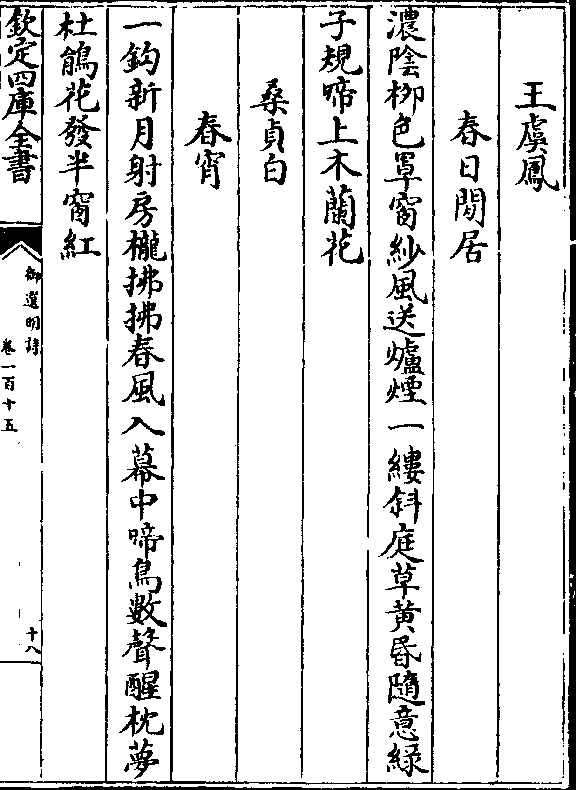 王虞鳳
春日閒居
濃陰柳色罩窗紗風送爐煙一縷斜庭草黄昏隨意緑
子規啼上木蘭花
桑貞白
春宵
一鈎新月射房櫳拂拂春風入幕中啼鳥數聲醒枕夢
杜鵑花發半窗紅
欽定四庫全書
御選明詩
卷一百十五
十八